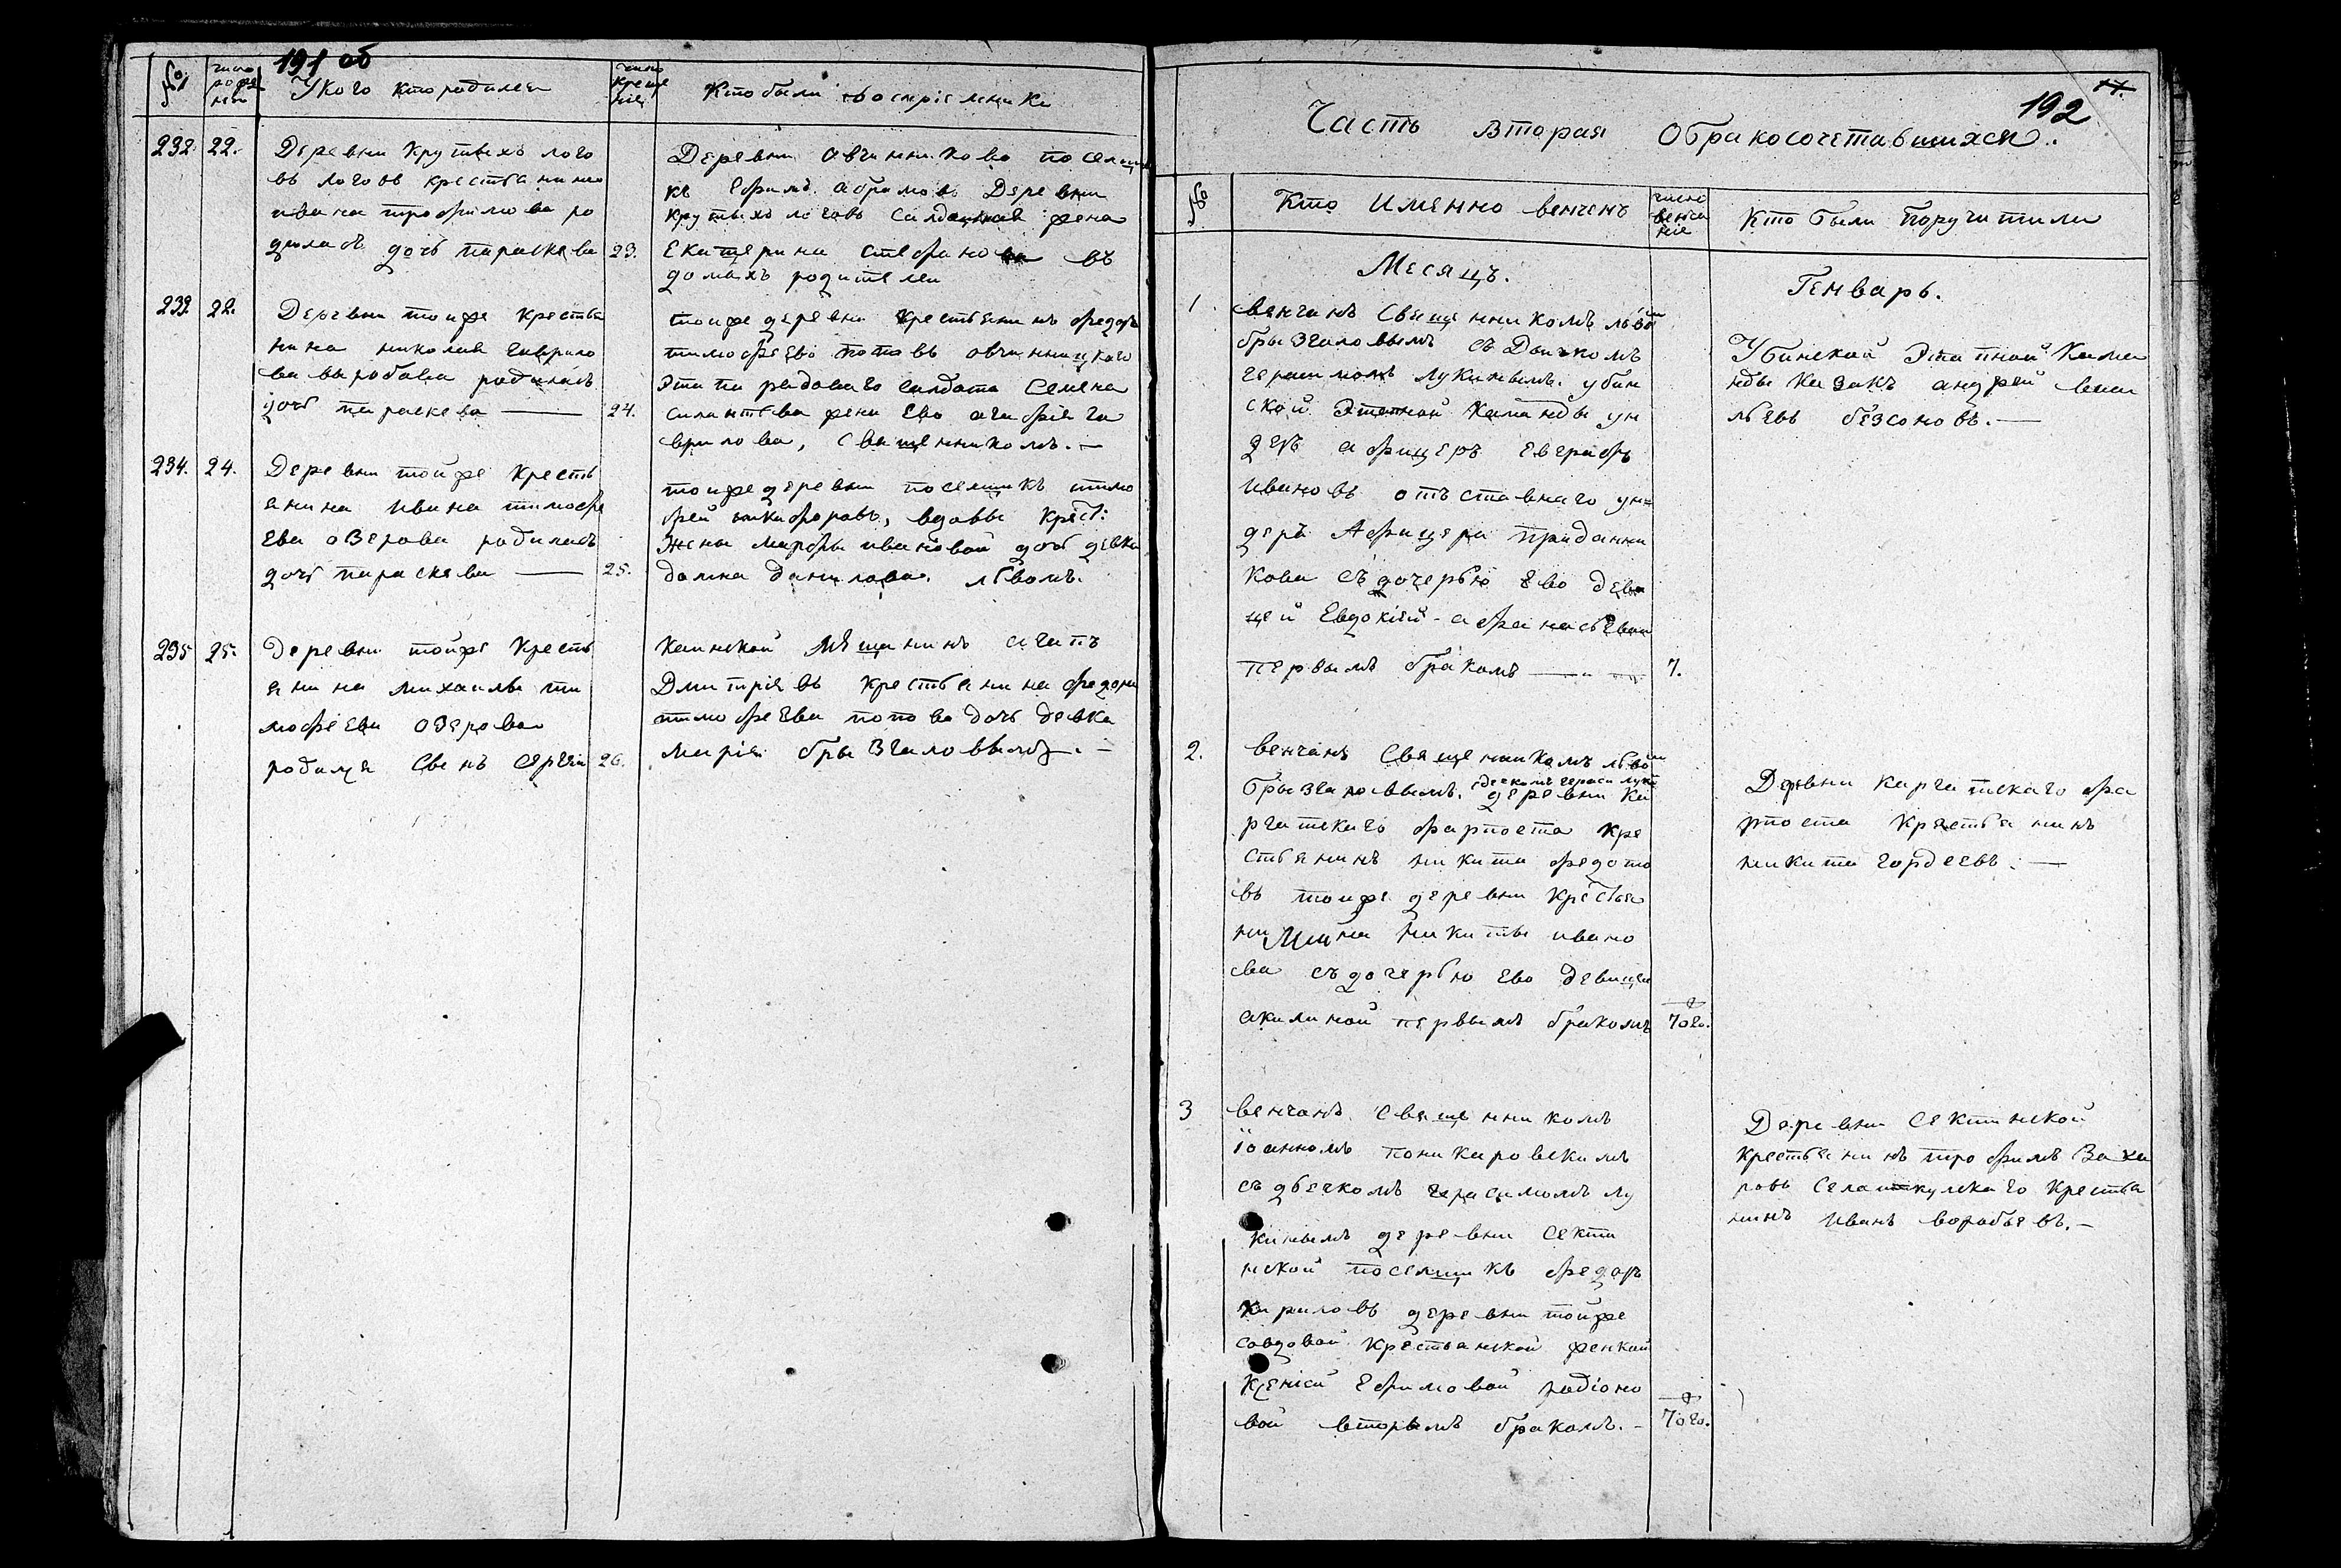 191 об
№
число
рожде
нія
У кого кто родился
число
креще
нія
Кто были воспріемники
232.
22.
Деревни Крутыхъ лого
въ логовъ крестьянина
ивана трофимова ро
дилась дочь параскева
23.
Деревни Овчинниково поселщи
къ Ефимъ абрамовъ Деревни
крутыхъ логовъ Салдатская жена
Екатерина Стефанова въ
домахъ родителеи
233
22.
Деревни тоиже крестья
нина николая гаврило
ва воробова родилась
дочь параскева —
24.
тоиже деревни крестьянинъ федоръ
тимофеево поповъ овчинницкого
Этапа рядоваго салдата Семена
силантьева жена Ево агафія га
врилова, священникомъ. —
234.
24.
Деревни тойже Кресть
янина Ивана тимофе
ева оЗерова родилась
дочь параскева —
25.
тоиже деревни поселщикъ тимо
фей никифоровъ, вдовы Крест:
Жены марфы ивановой дочь девка
домна данилова. лвомъ.
235
25.
Деревни тойже Кресть
янина михаилы ти
мофеева оЗерова
родился Сынъ Сергій
26.
Каинской Мѣщанинъ агапъ
Дмитріевъ крестьянина федора
тимофеева попова дочь девка
марія брызгаловымъ. —
17.
192
Часть вторая Обракосочетавшихся.
№
Кто Именно венченъ
число
венча
нія
Кто были Поручители
Месяцъ.
Генварь.
1.
венчанъ Священникомъ львомъ
брызгаловымъ съ Дьячкомъ
герасимомъ лукинымъ. убин
ской Этапной Каманды ун
деръ афицеръ Евграфъ
Ивановъ отъставнаго ун=
деръ Афицера приданни
кова съ дочерью Ево деви
цей Евдокіей афанасьевой
первымъ бракомъ —
7.
Убинской Этапной Кама
нды Казакъ андрей васи
льевъ безсоновъ. —
2.
венчанъ Священникомъ львомъ
брызгаловымъ. съ дьячкомъ гераси луки
деревни Ка
ргатскаго фарпоста кре
стьянинъ никита федото
въ тоиже деревни Крестья
нина никиты ивано
ва съ дочерью ево девицей
акилиной первымъ бракомъ
7 го.
Деревни каргатскаго фа
рпоста Крестьянинъ
никита гордеевъ. —
3
венчанъ Священникомъ
Іоанномъ поникаровскимъ
съ дьячкомъ герасимомъ лу
кинымъ деревни Секти
нской поселщикъ федоръ
Кириловъ деревни тойже
совдовой крестьянской женкой
Ксеніей Ефимовой родіоно
вой вторымъ бракомъ. —
7 го.
Деревни Сектинской
крестьянинъ трофимъ Заха
ровъ Села иткулскаго Крестья
нинъ Иванъ воробьевъ. —